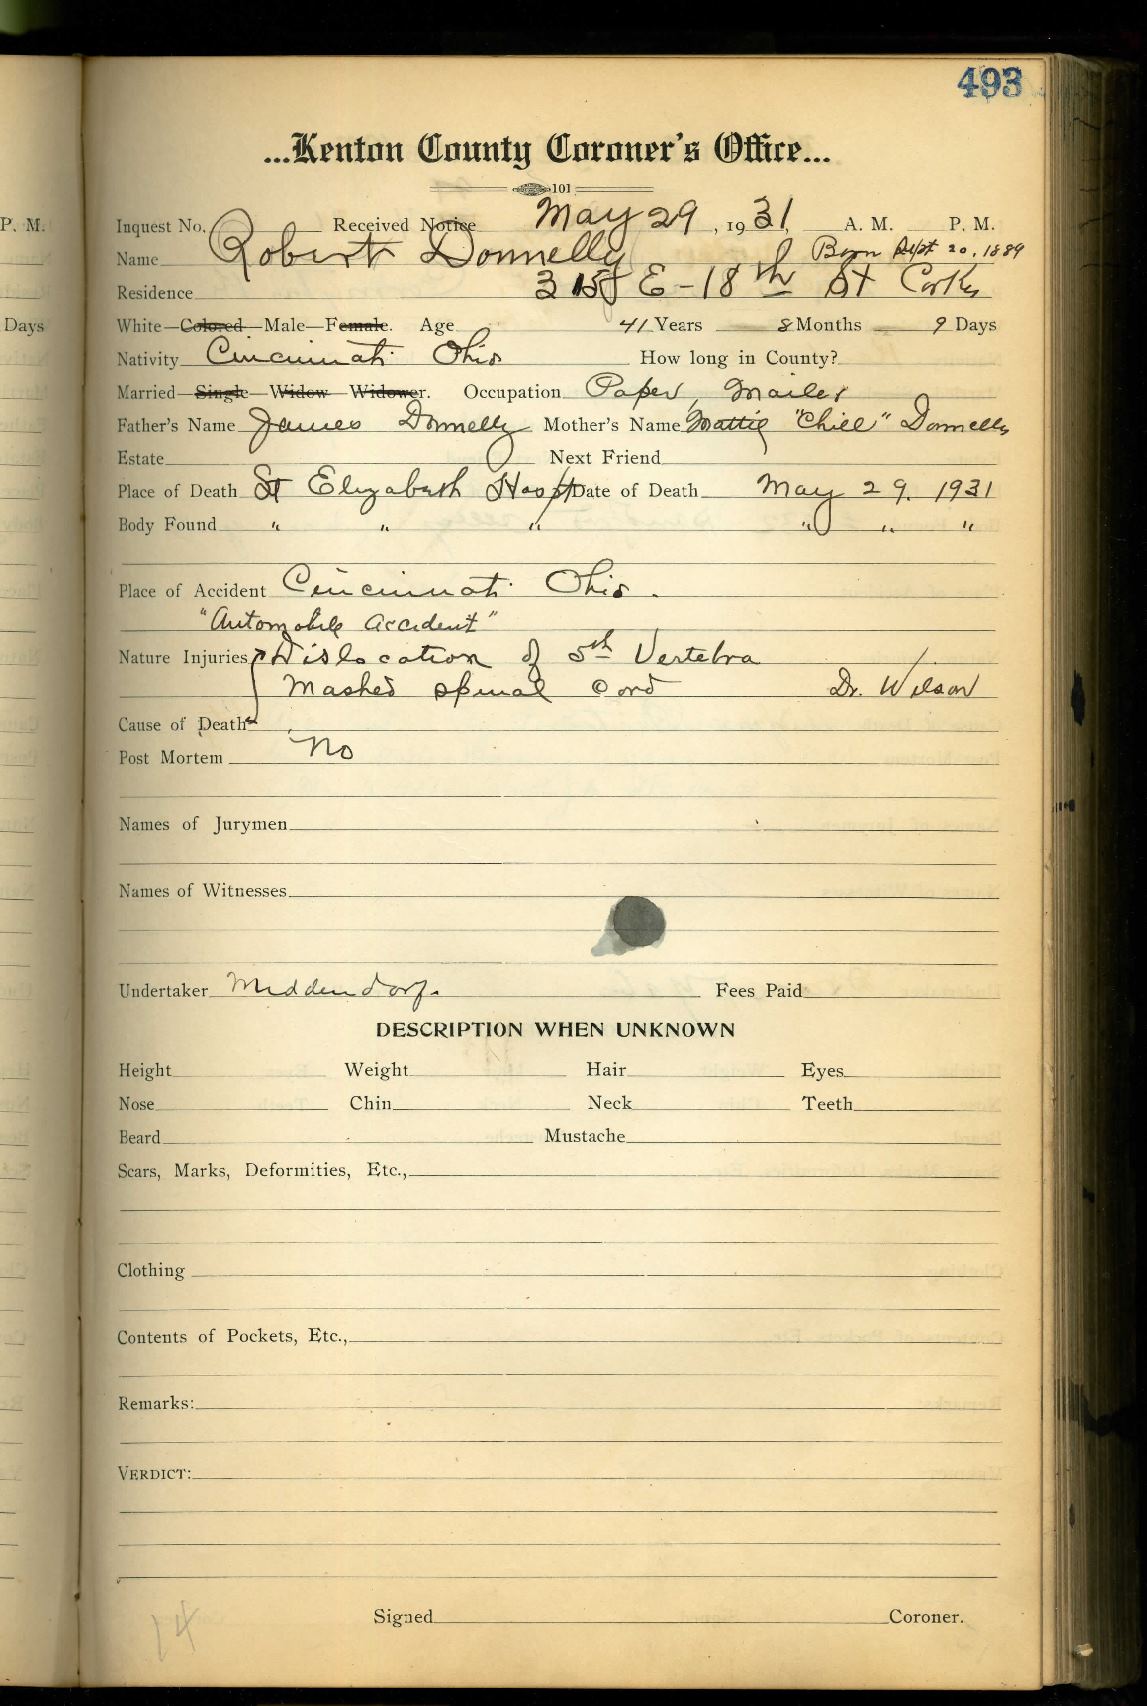 493
...Kenton County Coroner's Office...
101
Inquest No. Received Notice May 29, 1931, A. M. P. M.
Name Robert Donnelly Born Sept 20, 1889
Residence 315 E-18th St
White—Colored—Male—Female. Age 41 Years 8 Months 9 Days
Nativity Cincinnati Ohio How long in County?
Married—Single—Widow—Widower. Occupation Paper, Mailer
Father's Name James Donnelly Mother's Name Mattie "Chill" Donnelly
Estate Next Friend
Place of Death St Elizabeth Hospt Date of Death May 29. 1931
Body Found " " " " " "
Place of Accident Cincinnati Ohio.
"Automobile Accident"
Nature Injuries Dislocation of 5th Vertebra
Mashed spinal Cord Dr. Wilson
Cause of Death
Post Mortem No
Names of Jurymen
Names of Witnesses
Undertaker Middendorf.
Fees Paid
DESCRIPTION WHEN UNKNOWN
Height Weight Hair Eyes
Nose Chin Neck Teeth
Beard Mustache
Scars, Marks, Deformities, Etc.,
Clothing
Contents of Pockets, Etc.,
Remarks:
VERDICT:
Signed Coroner.
14
P. M.
Days